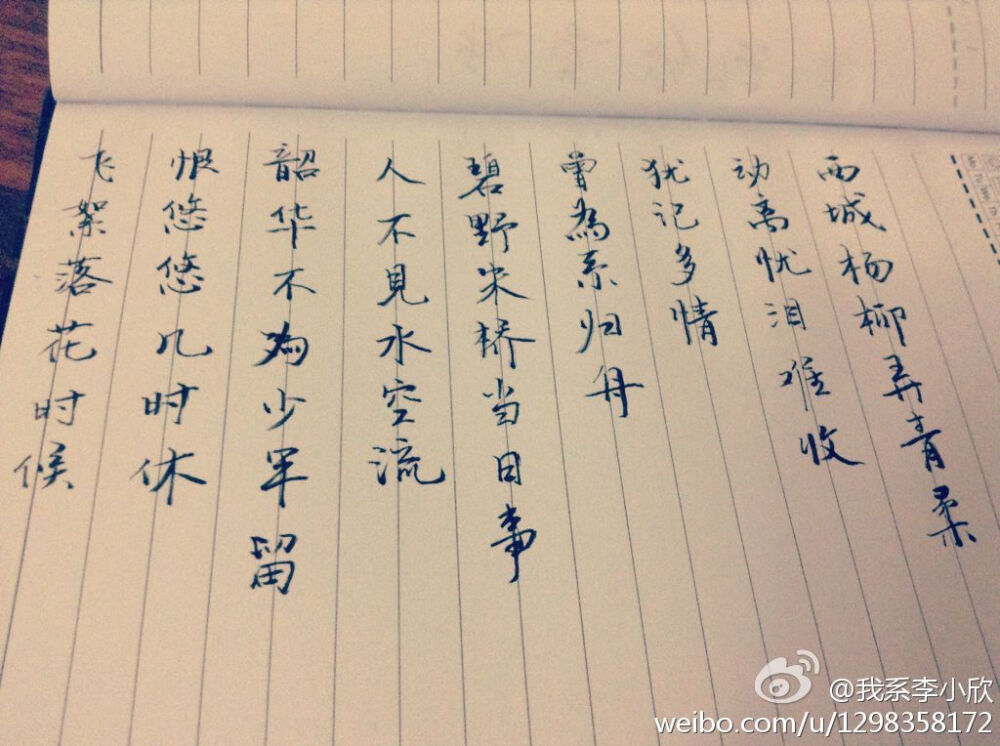 西城杨柳弄青柔
动离忧泪难收
犹记多情
曾為系归舟
碧野朱桥当日事
人不見水空流
韶华不为少年留
恨悠悠几时休
飞絮落花时候
@我系李小欣
weibo.com/u/1298358172